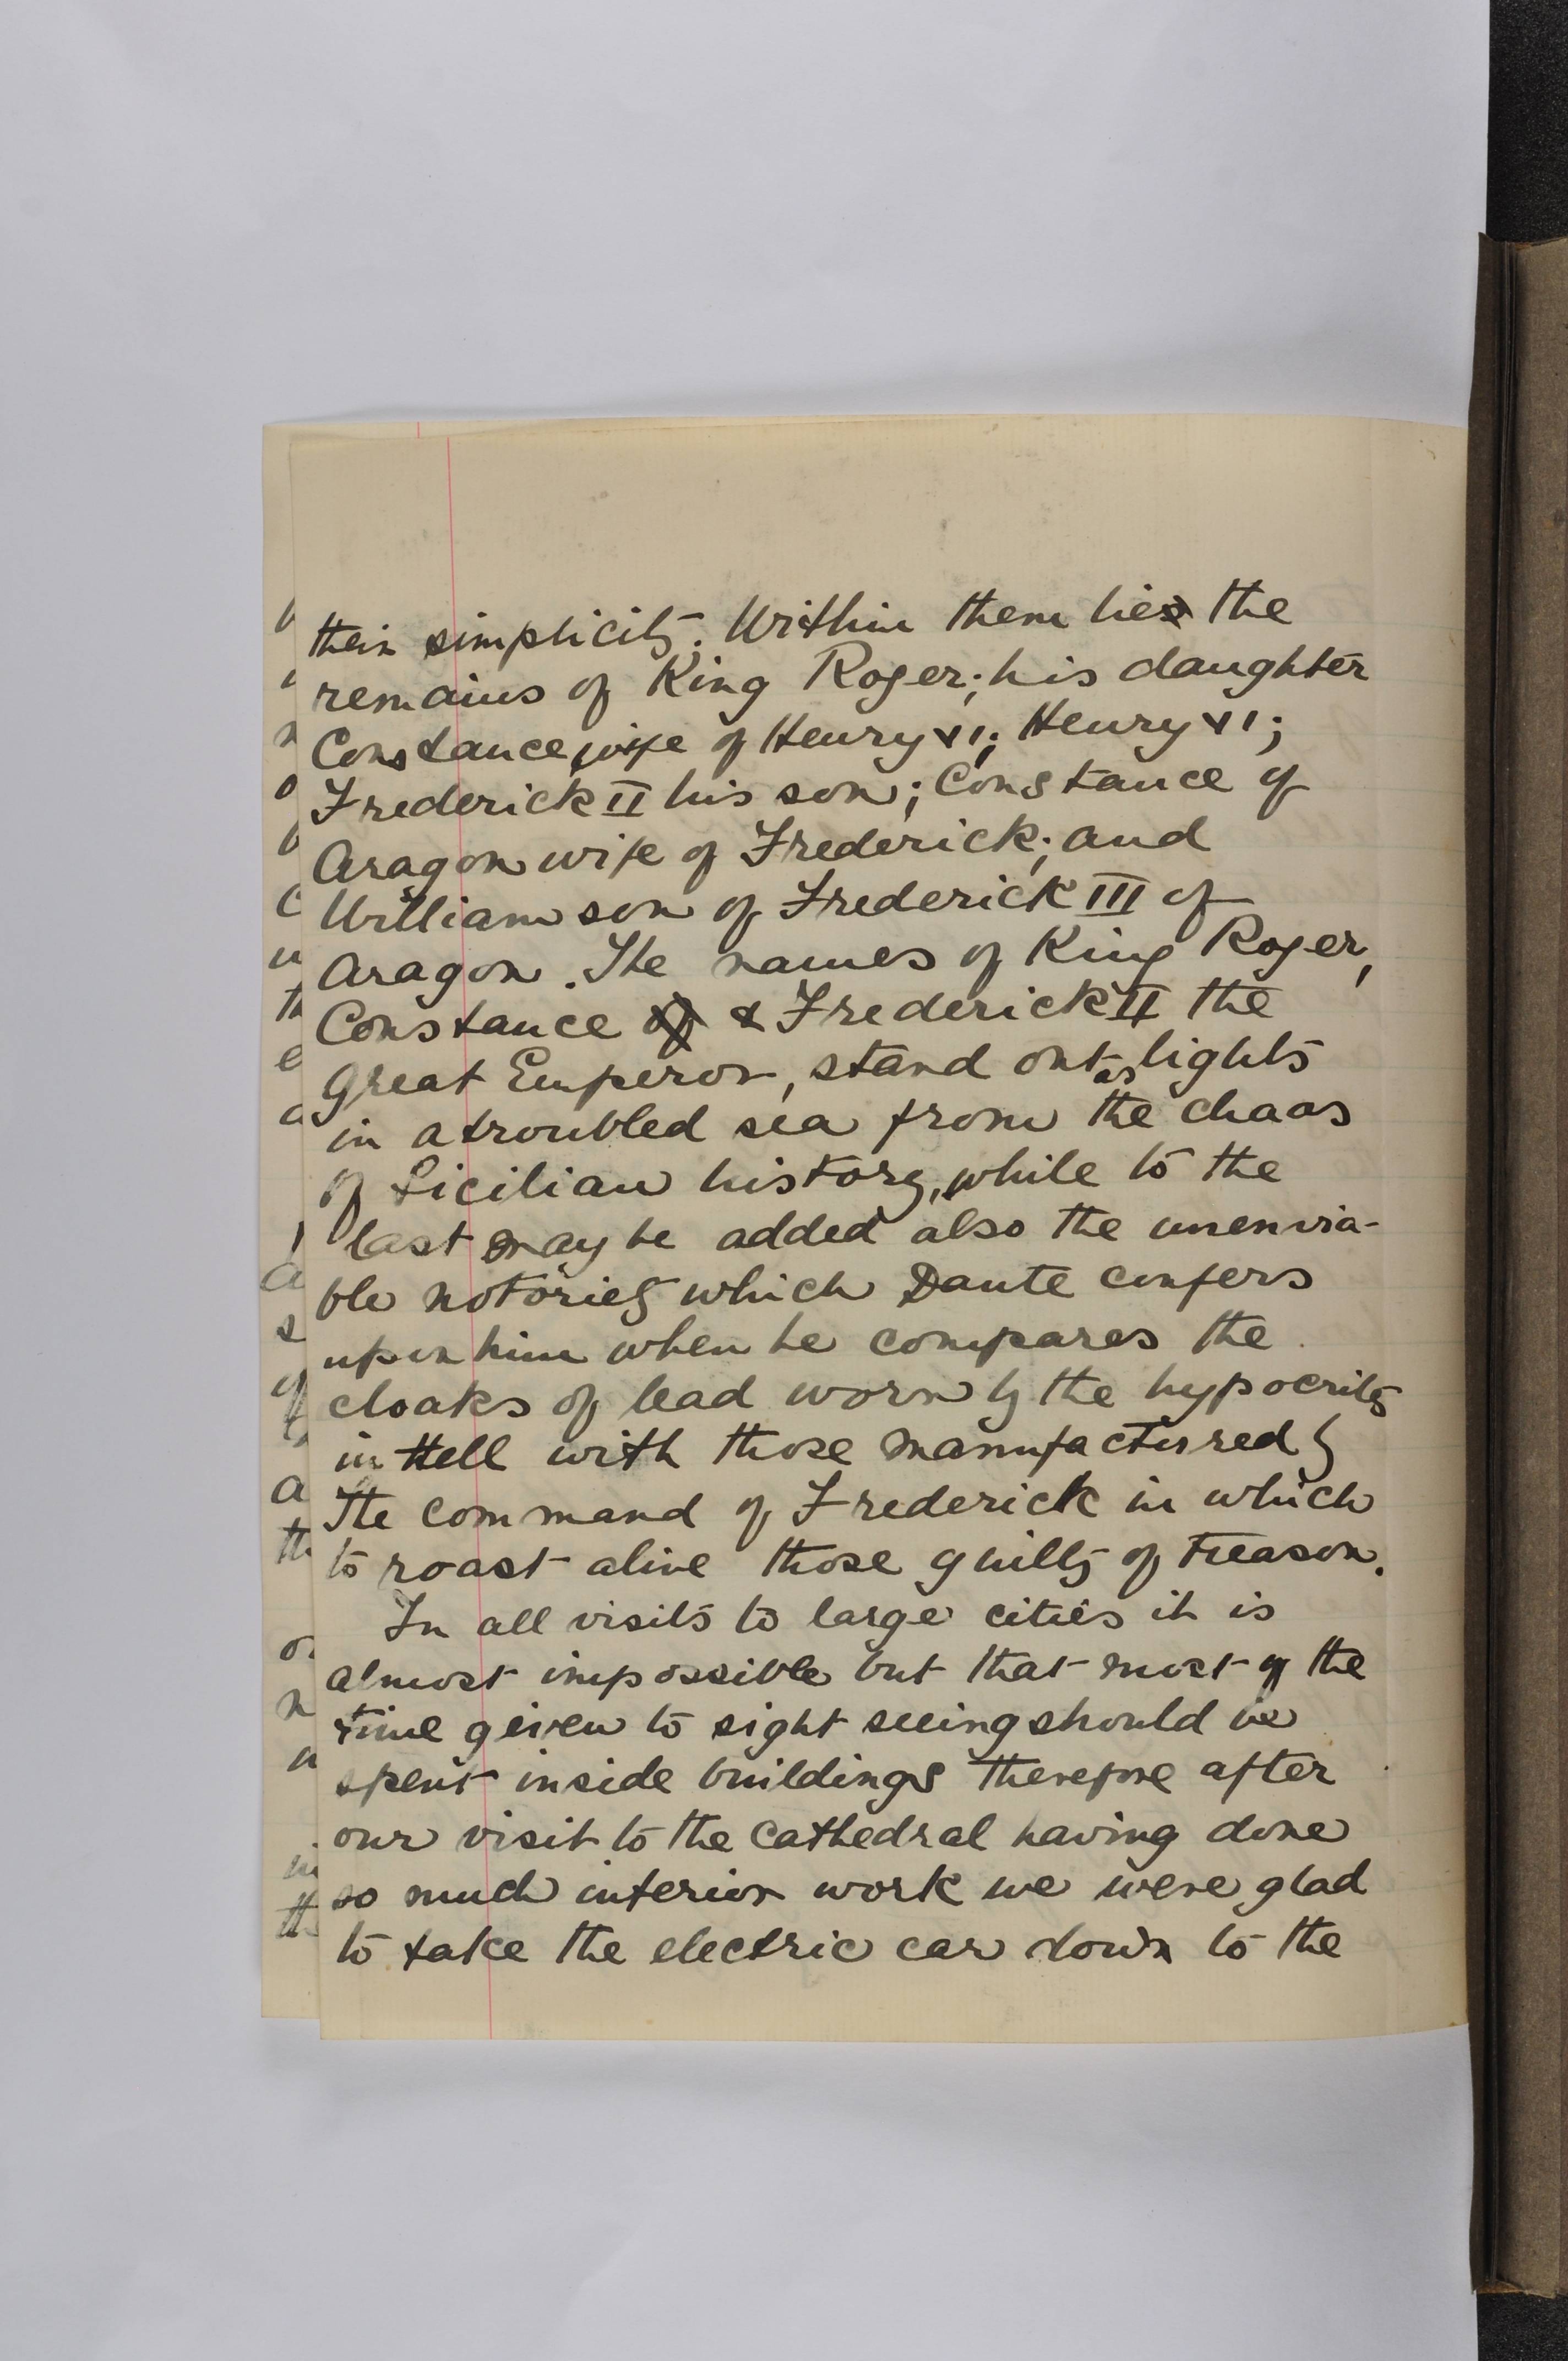 their simplicity. Within them lies the
remains of King Roger; his daughter
Constance, wife of Henry VI; Henry VI;
Frederick II his son; Constance of
Aragon wife of Frederick; and
William son of Frederick III of
Aragon. The names of King Roger,
Constance of & Frederick II the
Great Emperor, stand out as lights
in a troubled sea from the chaos
of Sicilian history, while to the
last may be added also the unenvia-
ble notoriety which Dante confers
upon him when he compares the
cloaks of lead worn by the hypocrites
in Hell with those manufactured by
the command of Frederick in which
to roast alive those guilty of treason.
In all visits to large cities it is
almost impossible but that most of the
time given to sight seeing should be
spent inside buildings therefore after
our visit to the Cathedral having done
so much interior work we were glad
to take the electric car down to the